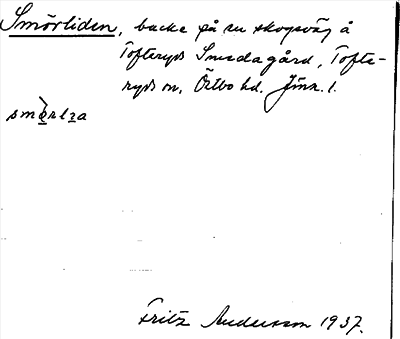 Smörliden, backe på en skogsväg å
Tofteryds Smedagård, Tofte-
ryds sn, Östbo hd. Jönk. l.
smörlɩa
Fritz Andersson 1937.